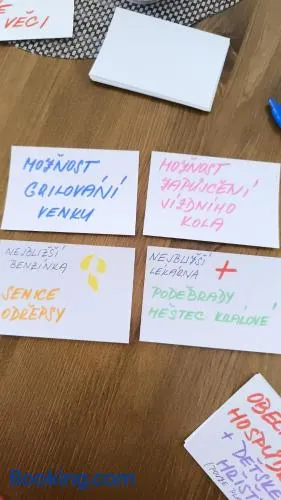 VĚCI
MOŽŇOST
GRILOVÁNÍ
VENKU
MOŽNOST
ZAPŮJČENÍ
JÍZDNÍHO
KOLA
NEJBLIŽŠÍ
BENZÍNKA
SENICE
ODŘEPSY
NEJBLIŽŠÍ
LEKÁRNA
PODĚBRADY
MĚSTEC KRÁLOVÉ
OBEC
HOSPŮD
+ DĚTSKÉ
HŘIŠ
Booking.com